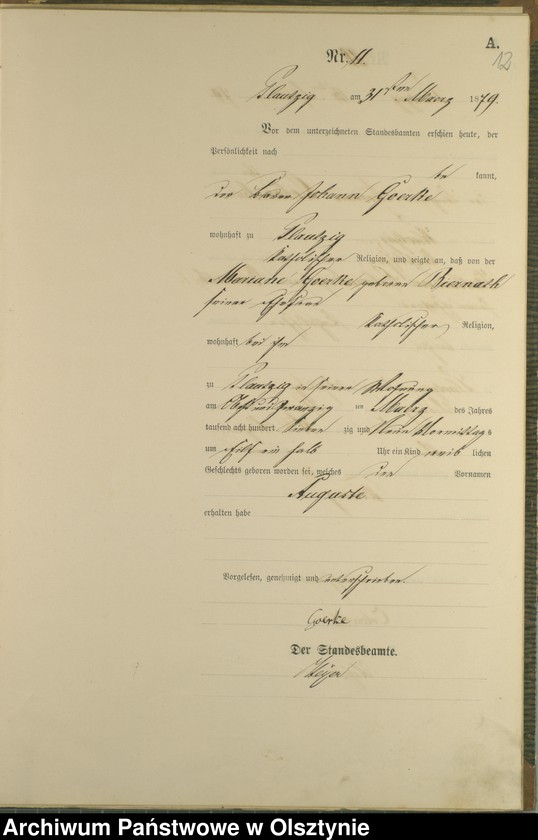 A.
12
Nr. 11.
Plautzig am 31ten Maerz 1879.
Vor dem unterzeichneten Standesbeamten erschien heute, der
Persönlichkeit nach
be kannt,
der Johann Goerke
wohnhaft zu Plautzig
katholischer Religion, und zeigte an, daß von der
Mariane Goerke geborene Biernath
seiner Ehefrau
katholischer Religion,
wohnhaft bei ihm
zu Plautzig in seiner Wohnung
am und zwanzig ten Maerz des Jahres
tausend acht hundert sieben zig und Neun Vormittags
um Eilf ein halb Uhr ein Kind weib lichen
Geschlechts geboren worden sei, welches den Vornamen
Auguste
erhalten habe
Vorgelesen, genehmigt und unterschrieben
Goerke
Der Standesbeamte.
Archiwum Państwowe w Olsztynie